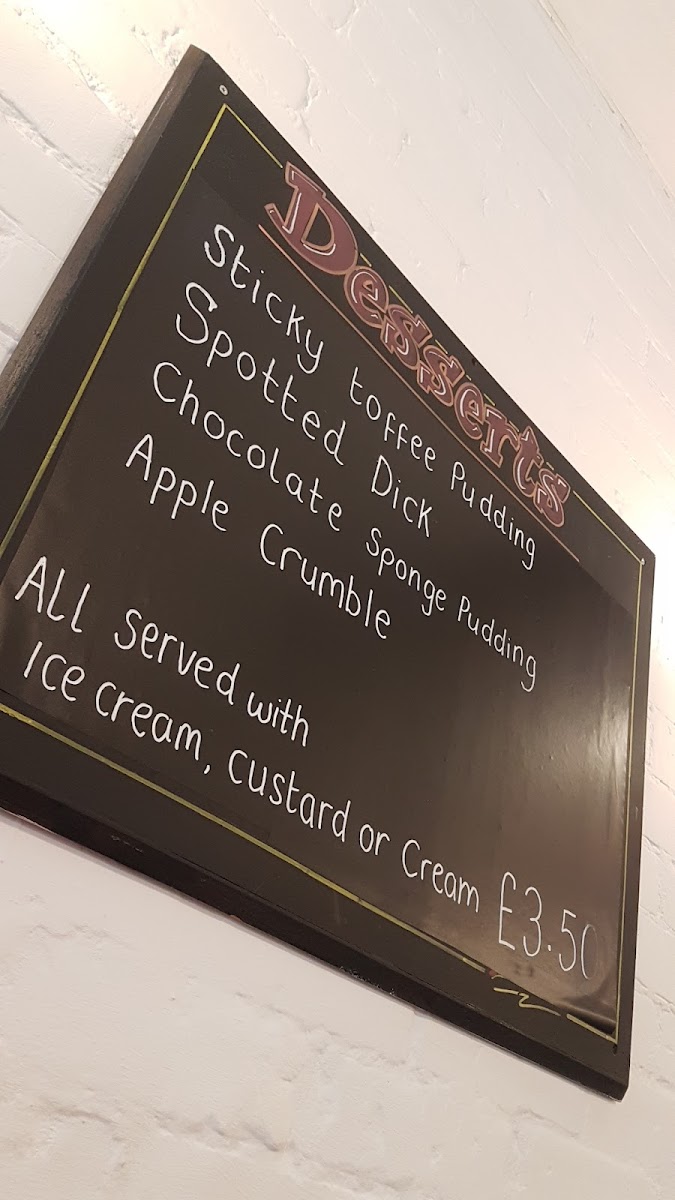 Desserts
Sticky toffee Pudding
Spotted Dick
Chocolate Sponge Pudding
Apple Crumble
ALL Served with
Ice cream, custard or Cream £3.50